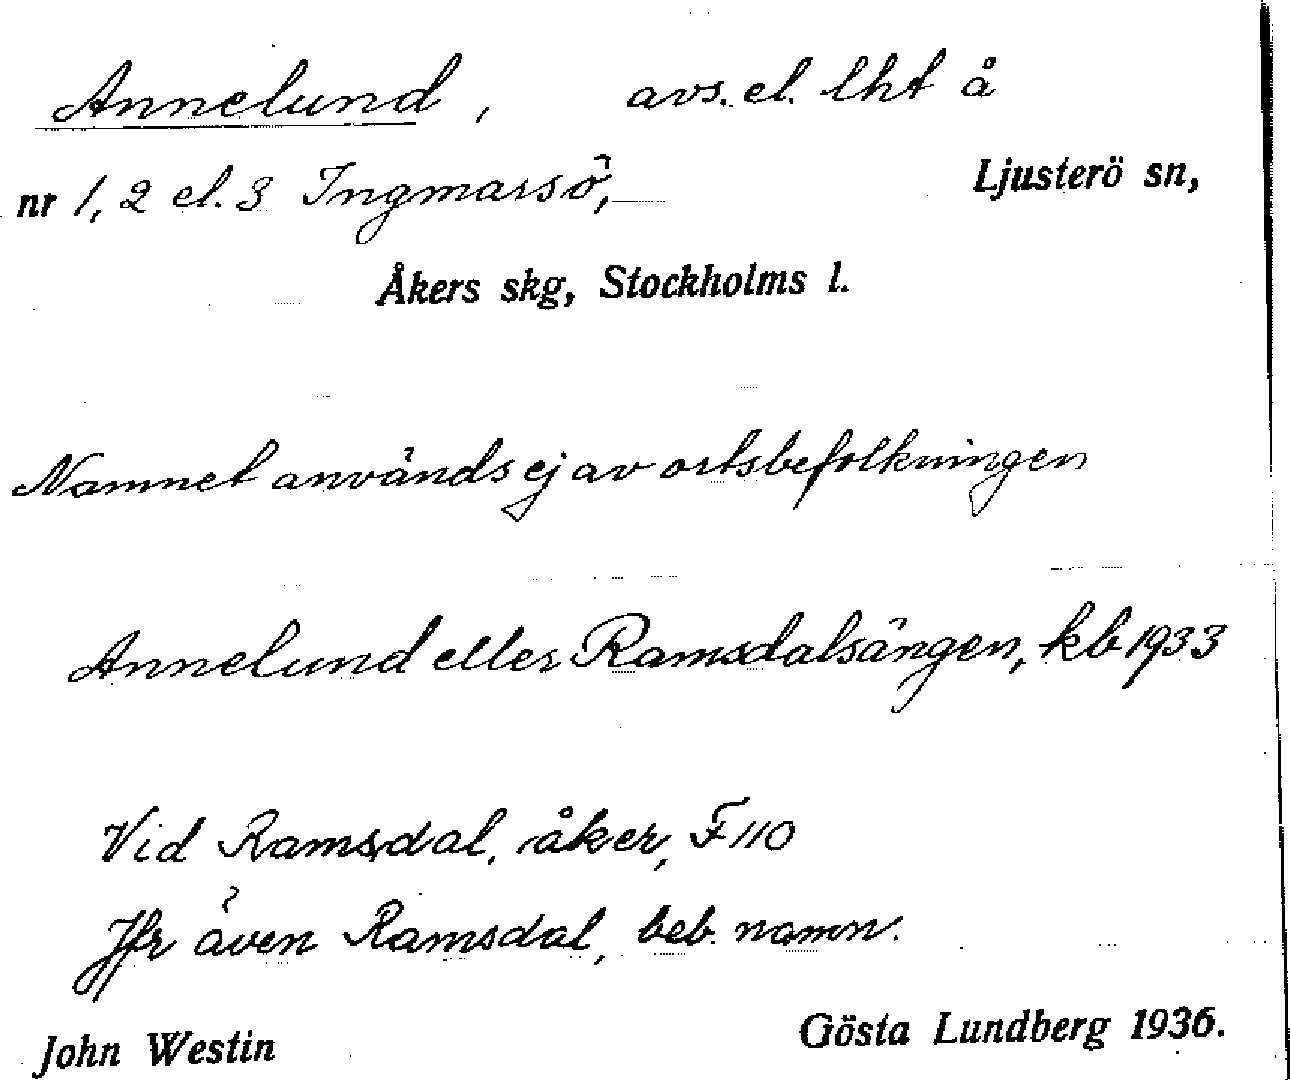 Annelund, avs. el. lht å
nr 1, 2 el. 3 Ingmarsö, Ljusterö sn,
Åkers skg, Stockholms l.
Namnet används ej av ortsbefolkningen
Annelund eller Ramsdalsängen, kb 1933
Vid Ramsdal, åker, F 110
Jfr även Ramsdal, beb. namn.
John Westin Gösta Lundberg 1936.